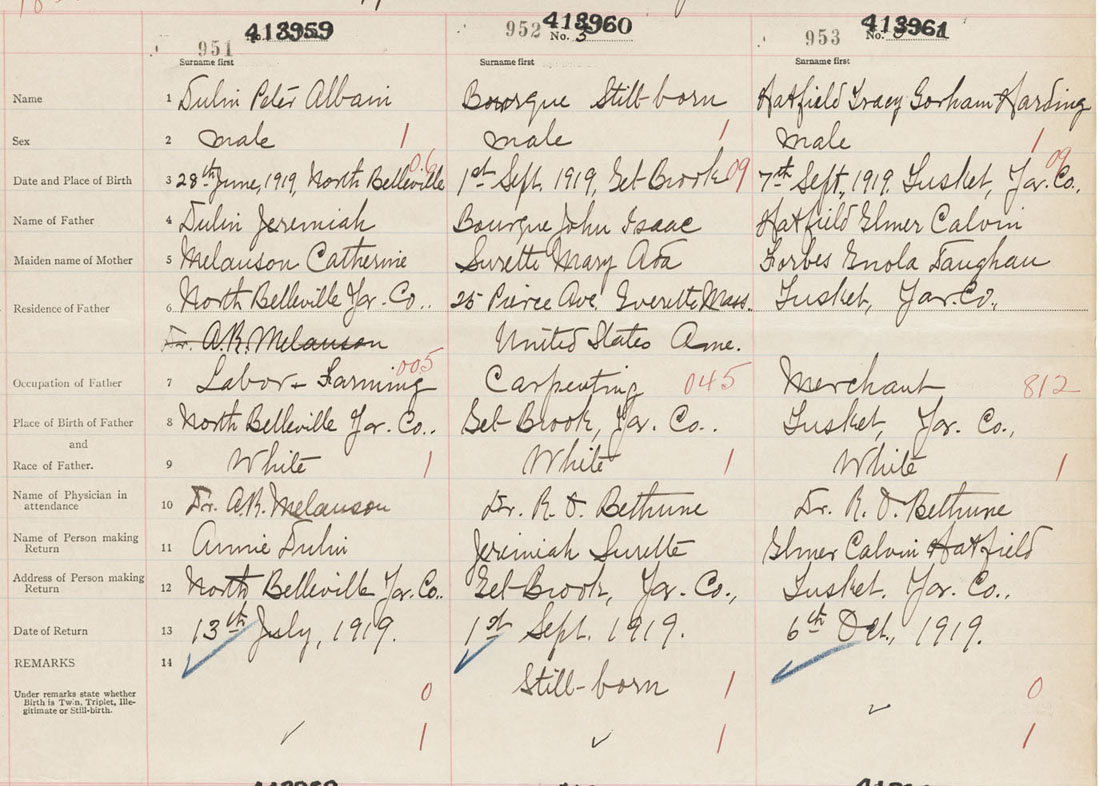 413959 413960 413961
951 No. 952 No. 5 953 No.
Surname first Surname first Surname first
Name 1 Dulin Peter Albain Bourque Still-born Hatfield Tracy Gorham Harding
Sex 2 male 1 male 1 male 1
06 09 09
Date and Place of Birth 3 28th June, 1919, North Belleville 1st Sept, 1919, Eel Brook 7th Sept, 1919. Tusket, Yar. Co.,
Name of Father 4 Dulin Jeremiah Bourque John Isaac Hatfield Elmer Calvin
Maiden name of Mother 5 Melanson Catherine Surette Mary Ada Forbes Enola Vaughan
Residence of Father 6 North Belleville Yar. Co.. 25 Pierce Ave. Everette Mass. Tusket, Yar. Co.,
Dr. A.R. Melanson United States Ame.
Occupation of Father 7 Labor & Farming 005 Carpenting 045 Merchant 812
Place of Birth of Father 8 North Belleville Yar. Co.. Eel-Brook, Yar. Co.. Tusket, Yar. Co.,
and
Race of Father. 9 White 1 White 1 White 1
Name of Physician in
attendance 10 Dr. A.R. Melanson Dr. R. O. Bethune Dr. R. O. Bethune
Name of Person making
Return 11 Annie Dulin Jeremiah Surette Elmer Calvin Hatfield
Address of Person making
Return 12 North Belleville Yar. Co.. Eel-Brook, Yar. Co., Tusket. Yar. Co.,
Date of Return 13 13th July, 1919. 1st Sept. 1919. 6th Oct., 1919.
REMARKS 14
Still-born
Under remarks state whether 0 1 0
Birth is Twin, Triplet, Ille-
gitimate or Still-birth.
1 1 1